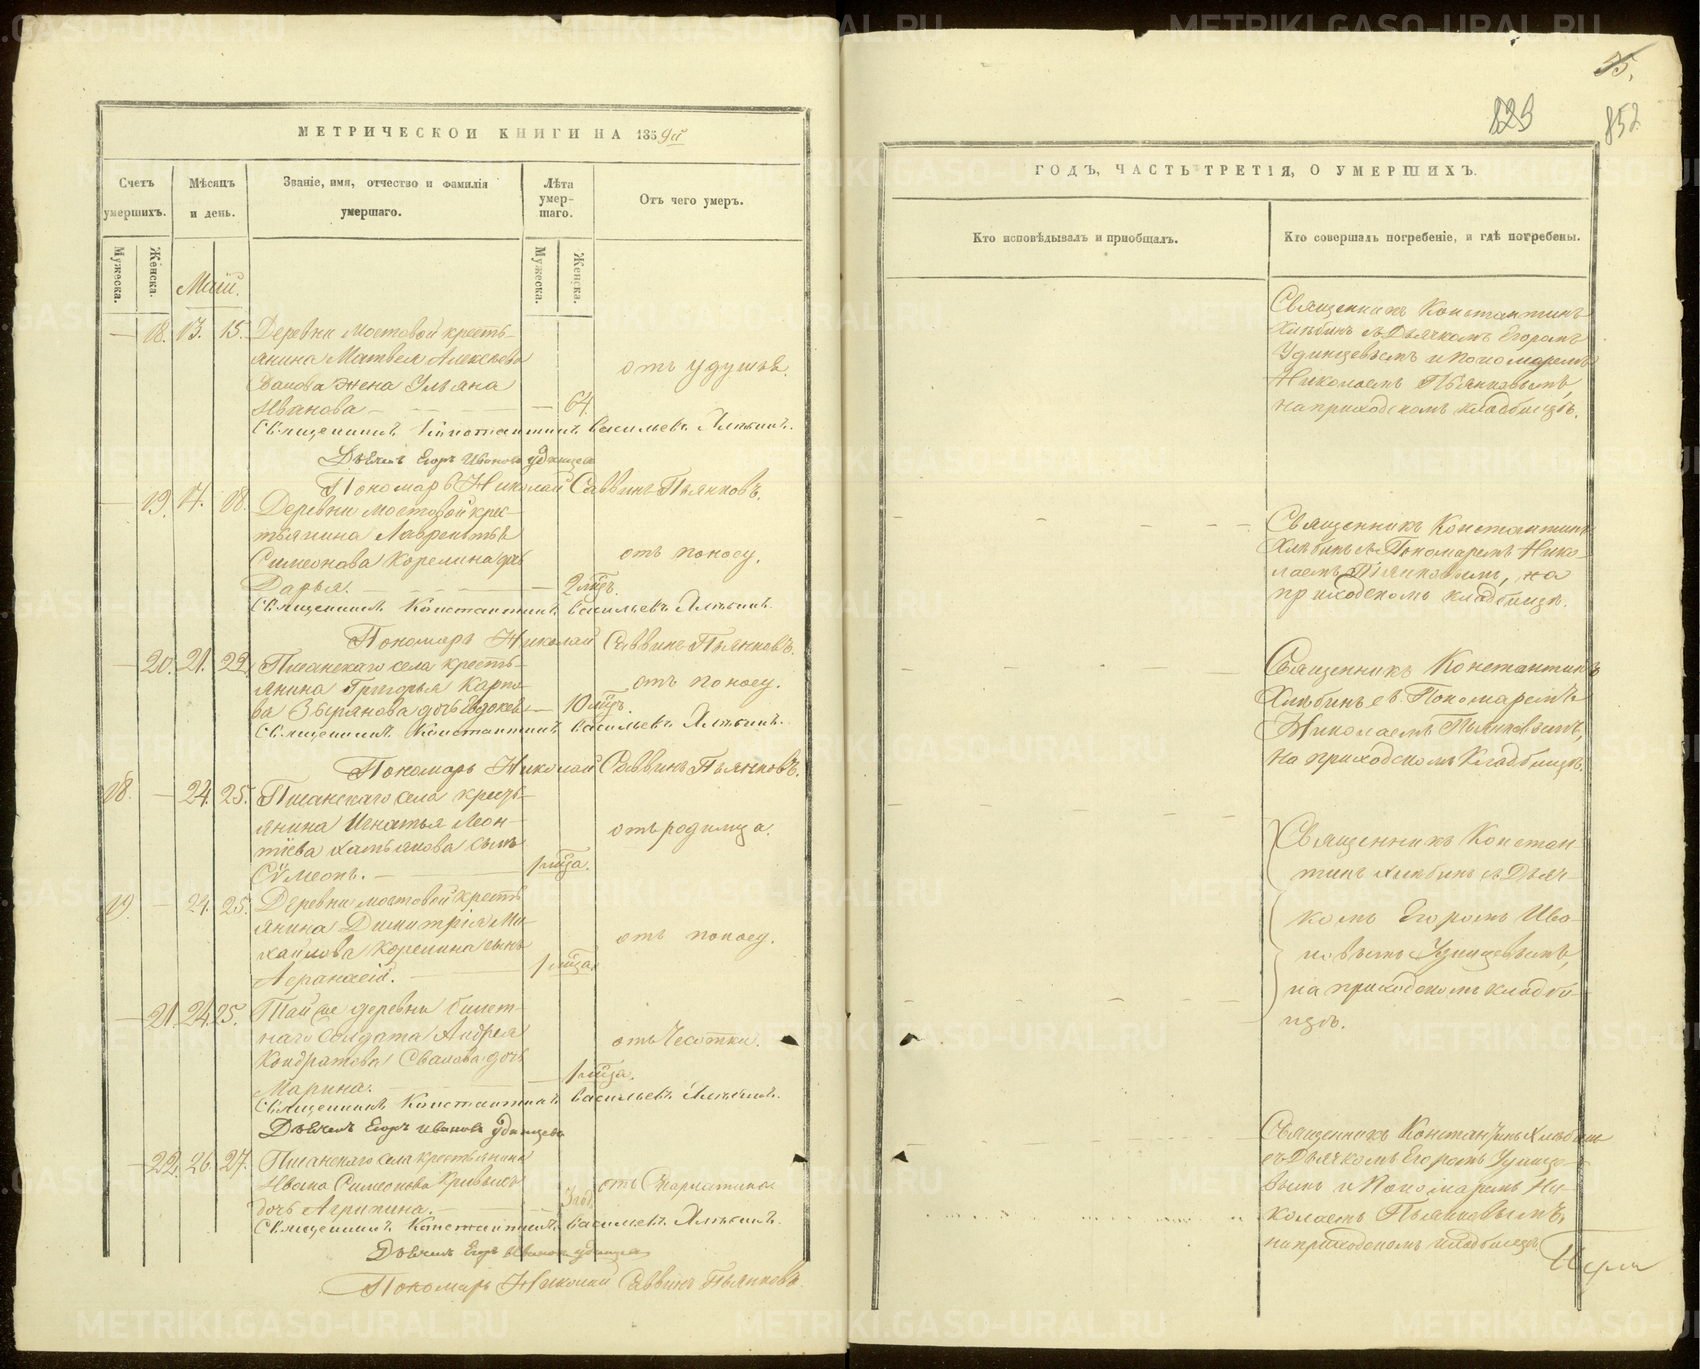 МЕТРИЧЕСКОЙ КНИГИ НА 1859й
Счетъ умершихъ.
Мѣсяцъ и день.
Званіе, имя, отчество и фамилія умершаго.
Лѣта умер-
шаго.
Отъ чего умеръ.
Мужеска.
Женска.
Мужеска.
Женска.
Маій.
18. 13. 15. Деревни Мостовой кресть-
янина Матвея Алексѣева
жена Ульяна
Иванова 64. отъ удушья.
Священникъ Константинъ Васильевъ Хлѣбинъ.
Дьячекъ Егоръ Ивановъ Удинцевъ
Пономарь Николай Саввинъ Пьянковъ.
19. 17. 18. Деревни Мостовой крес-
тьянина Лаврентья
Симеонова Корелина дочь
Дарья. 2 мѣц. отъ поносу.
Священникъ Константинъ Васильевъ Хлѣбинъ.
Пономарь Николай Саввинъ Пьянковъ.
20. 21. 22. Писанскаго села кресть-
янина Григорья Карпо-
ва Зырянова дочь Евдокея 10 мѣц. отъ поносу.
Священникъ Константинъ Васильевъ Хлѣбинъ.
Пономарь Николай Саввинъ Пьянковъ.
18. 24. 25. Писанскаго села кресть-
янина Игнатья Леон-
тіева сынъ
Сѵмеонъ. 1 мѣца. отъ родимца.
19. 24. 25. Деревни Мостовой кресть-
янина Димитрія Ми-
хайлова Корелина сынъ
Афанасій. 1 мѣца. отъ поносу.
21. 24. 25. Той же деревни билет-
наго Солдата Андрея
Кондратова Свалова дочь
Марина. 1 мѣца. отъ Чесотки.
Священникъ Константинъ Васильевъ Хлѣбинъ.
Дьячекъ Егоръ Ивановъ Удинцевъ
22. 26. 27. Писанскаго села крестьянина
Ивана Симеонова
дочь Агрипина. отъ Скарлатины
Священникъ Константинъ Васильевъ Хлѣбинъ.
Дьячекъ Егоръ Ивановъ Удинцевъ
Пономарь Николай Саввинъ Пьянковъ.
823
852
ГОДЪ, ЧАСТЬ ТРЕТІЯ, О УМЕРШИХЪ.
Кто исповѣдывалъ и пріобщалъ.
Кто совершалъ погребеніе, и гдѣ погребены.
Священникъ Константинъ
Хлѣбинъ съ Дьячкомъ Егоромъ
Удинцевымъ и Пономаремъ
Николаемъ Пьянковымъ,
на приходскомъ кладбищѣ.
Священникъ Константинъ
Хлѣбинъ съ Пономаремъ Нико-
лаемъ Пьянковымъ, на
приходскомъ кладбищѣ.
Священникъ Константинъ
Хлѣбинъ съ Пономаремъ
Николаемъ Пьянковымъ,
на приходскомъ кладбищѣ.
Священникъ Констан-
тинъ Хлѣбинъ съ Дьяч-
комъ Егоромъ Ива-
новымъ Удинцевымъ,
на приходскомъ кладби-
щѣ.
Священникъ Константинъ Хлѣбинъ
съ Дьячкомъ Егоромъ Удинце-
вымъ и Пономаремъ Ни-
колаемъ Пьянковымъ,
на приходскомъ кладбищѣ.
METRIKI.GASO-URAL.RU